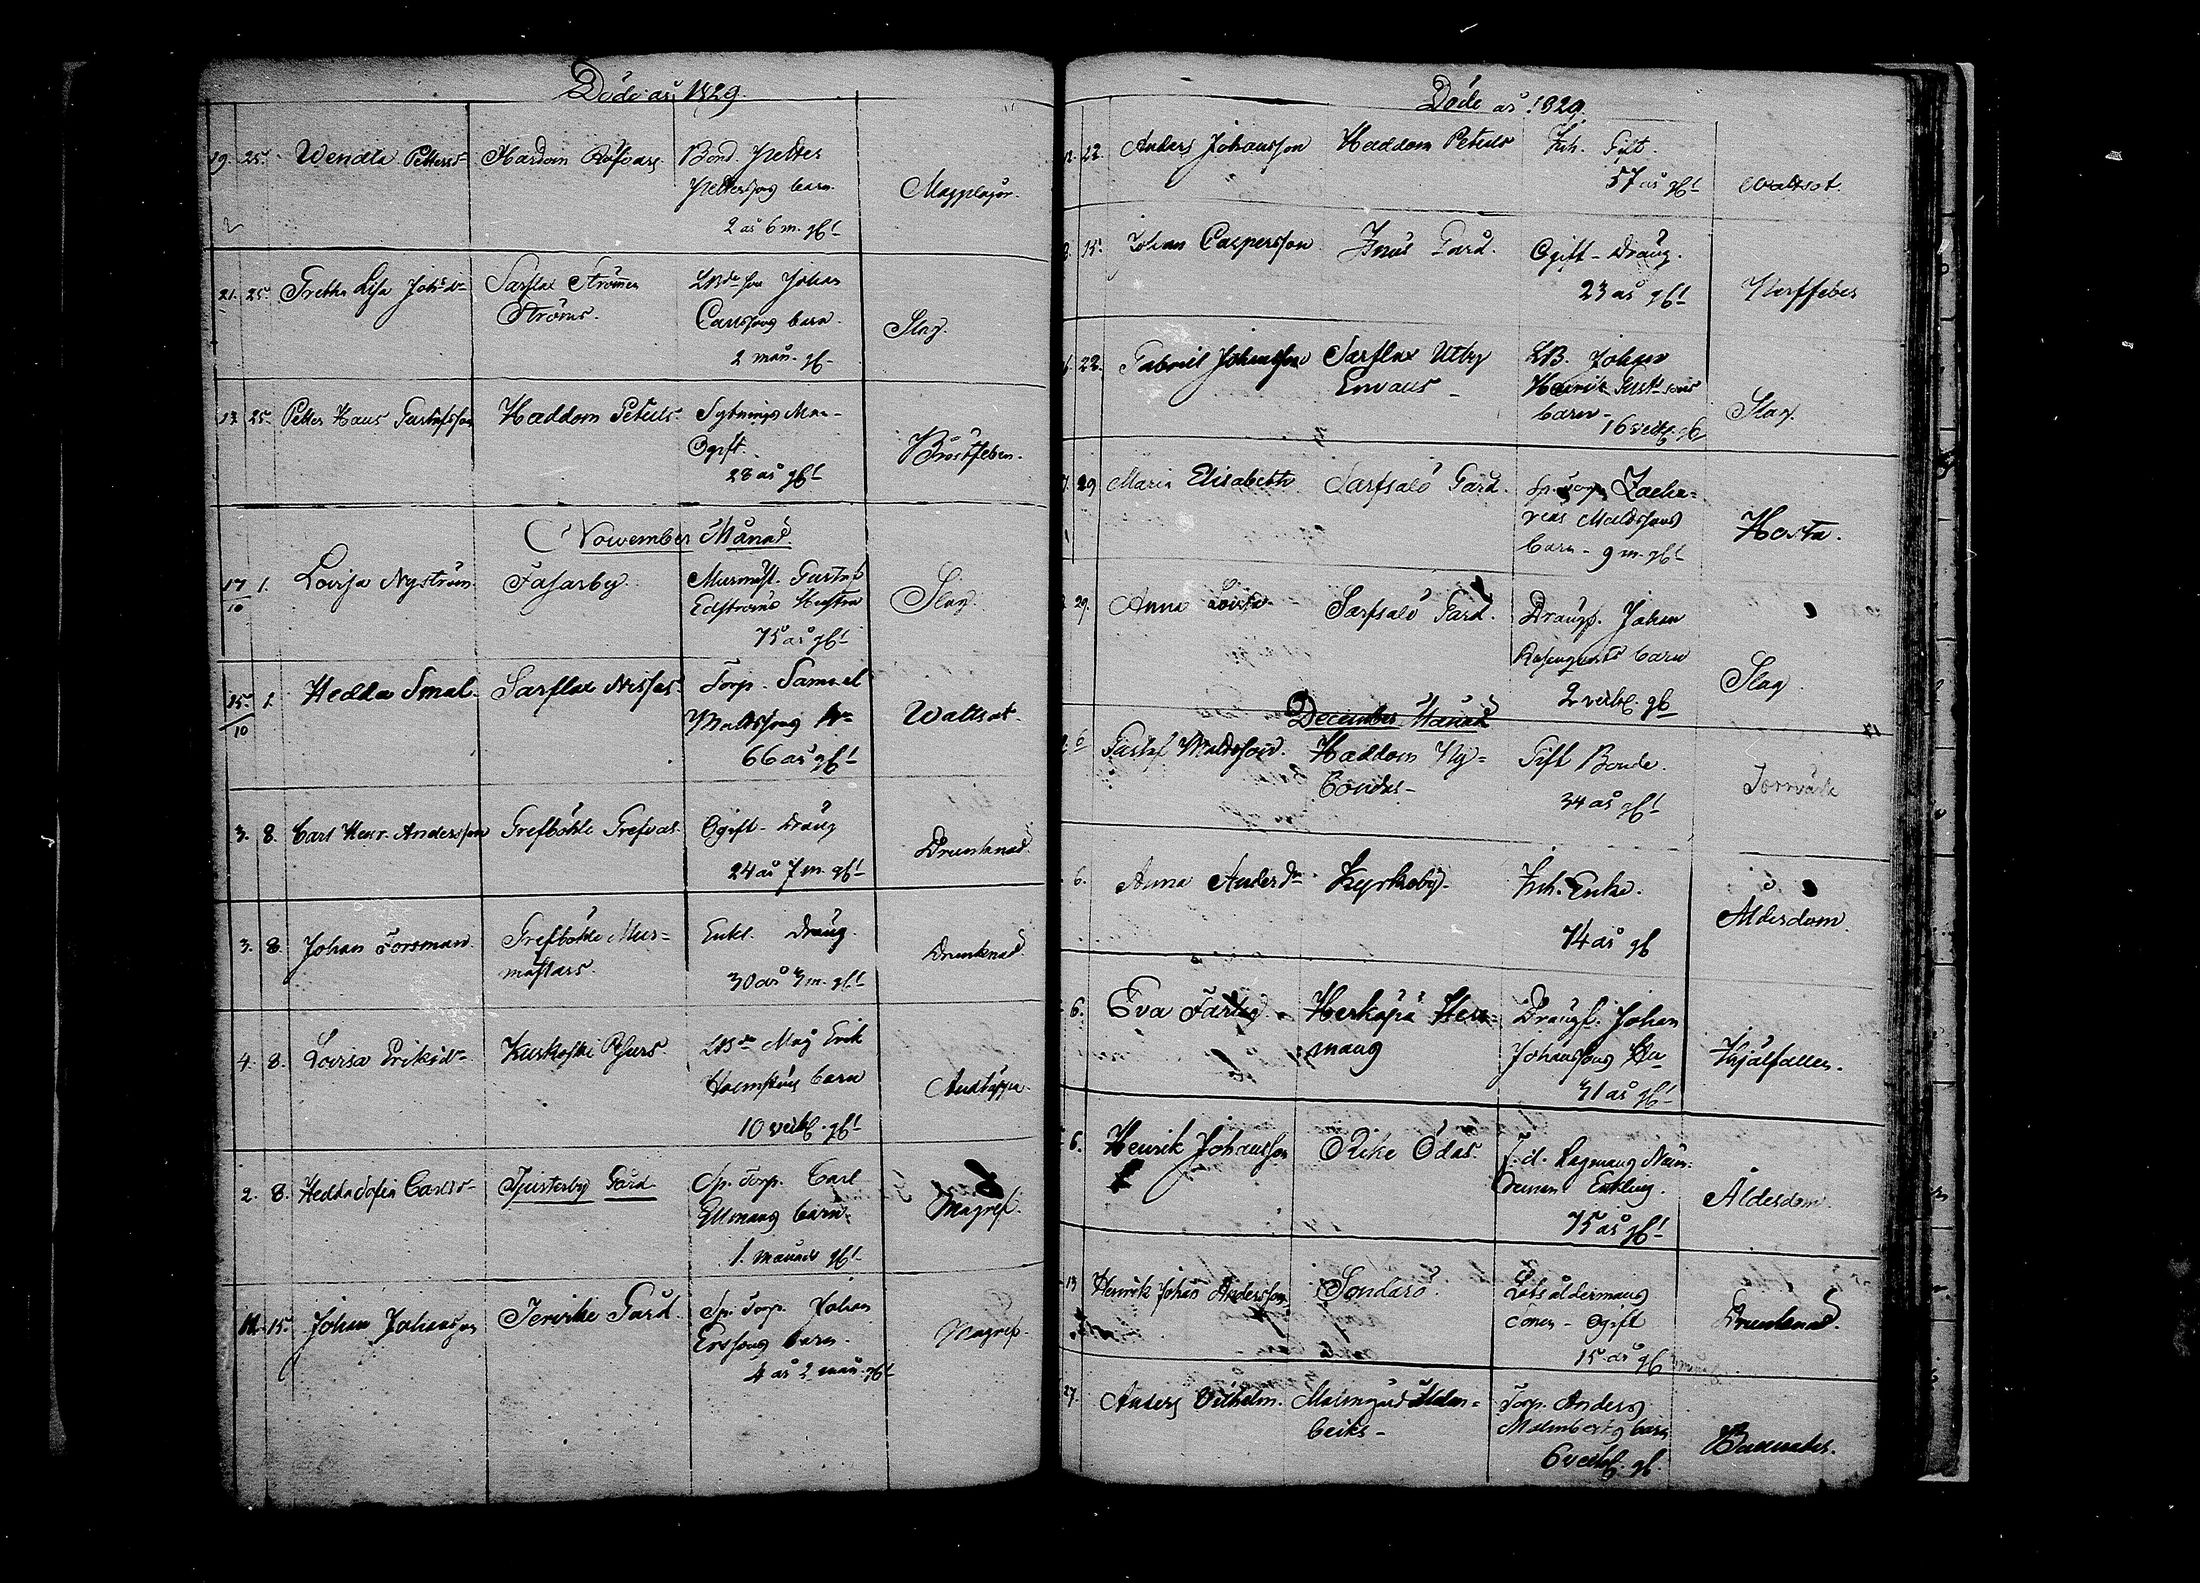 Döde år 1829
19. 25. Wendla Petters Hardom
Bond. Petter
Pettersons barn
2 år 6 m. gl.
21. 25. Greta Lisa Joh:sdr Sarflax Strömen
Ströms.
Johan
Carlssons barn.
2 mån. gl.
Slag.
13 25. Petter Hans Gustafsson Haddom Peters. Sytnings Man
Ogift.
28 år gl.
Bröstfeber.
November Månad.
17/10 1. Lovisa Nyström Fasarby. Murmäst. Gustaf
Edströms Hustru
75 år gl.
Slag.
25/10 1. Hedda Smal. Sarflax Nisses. Torp. Samuel
Mattssons
66 år gl.
Wattsot.
3. 8. Carl Henr. Andersson Grefböhle Grefvas. Ogift Dräng
24 år 7 m. gl.
Drunknad.
3. 8. Johan Forsman Grefböhle Mur-
mästars.
Enkl. Dräng.
30 år 3 m. gl.
Drunknad.
4. 8. Lovisa Eriksdr Kuskoski
Måg Erik
Holmströms barn
10 veck. gl.
Andtäppa.
2. 8. Hedda Sofia Carlsdr Tjusterby Gård Sp. Torp. Carl
Ellmans barn.
1. månad gl.
Magref.
11. 15. Johan Johansson Gård Sp. Torp. Johan
Erssons barn.
4 år 2 mån. gl.
Magref.
Döde år 1829.
22. Anders Johansson Haddom Peters Inh. Gift.
57 år gl.
Wattsot.
15. Johan Caspersson Gård. Ogift Dräng.
23 år gl.
Nerffeber
22. Gabriel Johansson Sarflax Utby
Johan
Henrik
barn
16 veck. gl.
Slag.
29 Maria Elisabeth Sarfsalö Gård. Sp. Torp. Zacha-
rias Mattssons
barn 9 m. gl.
Hosta.
29. Anna Lovisa Sarfsalö Gård. Drängs. Johan
Rosenqvists barn
2 veck. gl.
Slag.
December Månad
6 Gustaf Mattsson. Haddom Ny-
bondas
Gift Bonde.
34 år gl.
Torrvärk
6. Anna Andersdr Kyrkoby. Inh. Enka.
74 år gl.
Ålderdom.
6. Eva Herkäpä Her-
mans
Drängs. Johan
Johanssons
31 år gl.
Ihjälfallen.
6. Henrik Johansson Rike Ödas.
F. d. Lagmans Näm-
deman Enkling.
75 år gl.
Ålderdom.
13 Henrik Johan Andersson Söndarö. Lots åldermans
sonen Ogift
15 år gl.
Drunknad.
27. Anders Vilhelm. Malmgård Malm-
bergs
Torp. Anders
Malmbergs barn
6 veck. gl.